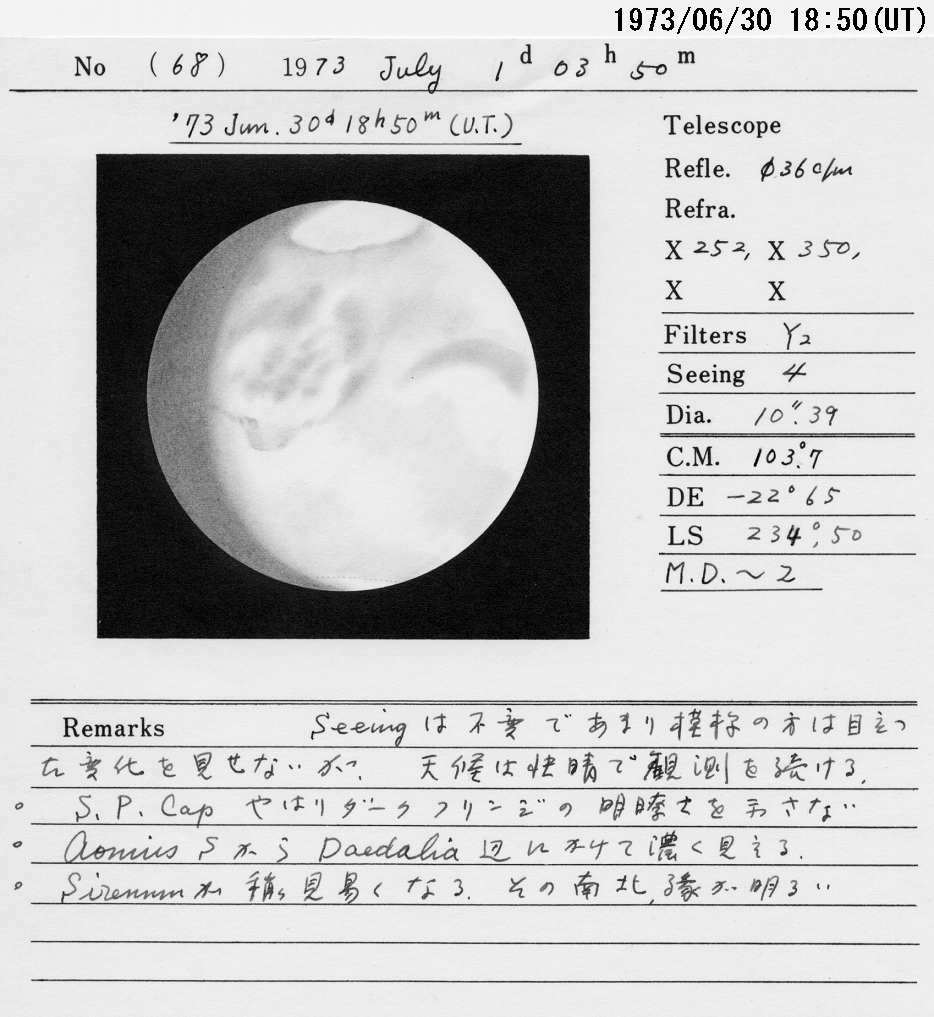 1973/06/30 18:50(UT)
No (68) 1973 July 1 d 03 h 50 m
'73 Jun. 30d 18h 50m (U.T.)
Telescope
Refle. φ36 c/m
Refra.
X 252, X 350,
X X
Filters Y2
Seeing 4
Dia. 10".39
C.M. 103°.7
DE -22°65
LS 234°.50
M.D. ~ 2
Remarks Seeing は不変であまり模様の方は目立つ
た変化を見せないが、天候は快晴で観測を続ける.
○ S.P. Cap やはりダークフリンジの明瞭さを示さない
○ Aonius S から Daedalia 辺にかけて濃く見える.
○ Sirenum が稍、見易くなる. その南北縁が明るい